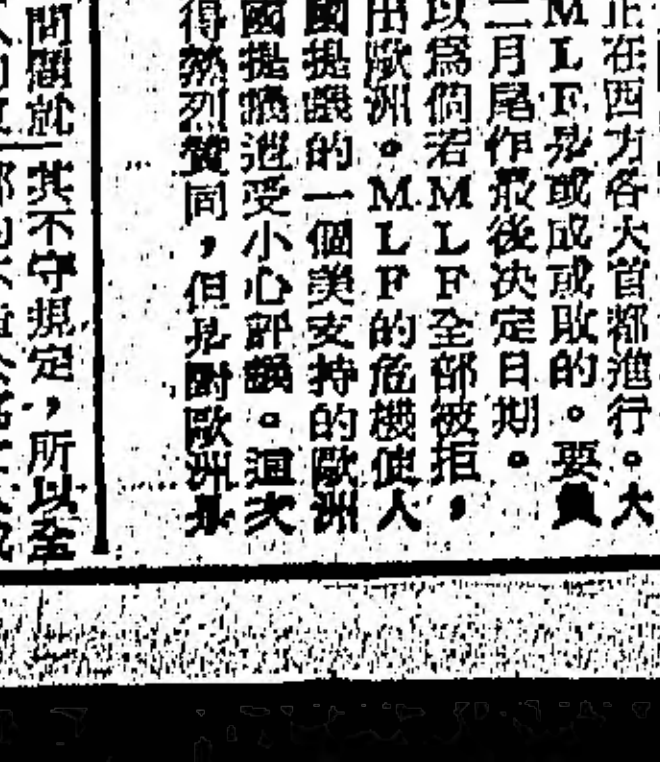 正在西方各大首都進行。大
MLF是或成或敗的。要
二月尾作最後決定日期。
以爲倘若MLF全部被拒,
出歐洲。MLF的危機使人
國提議的一個美支持的歐洲
國提議遭受小心評論。這次
得熱烈贊同,但是對歐洲
問題就
其不守規定,所以全